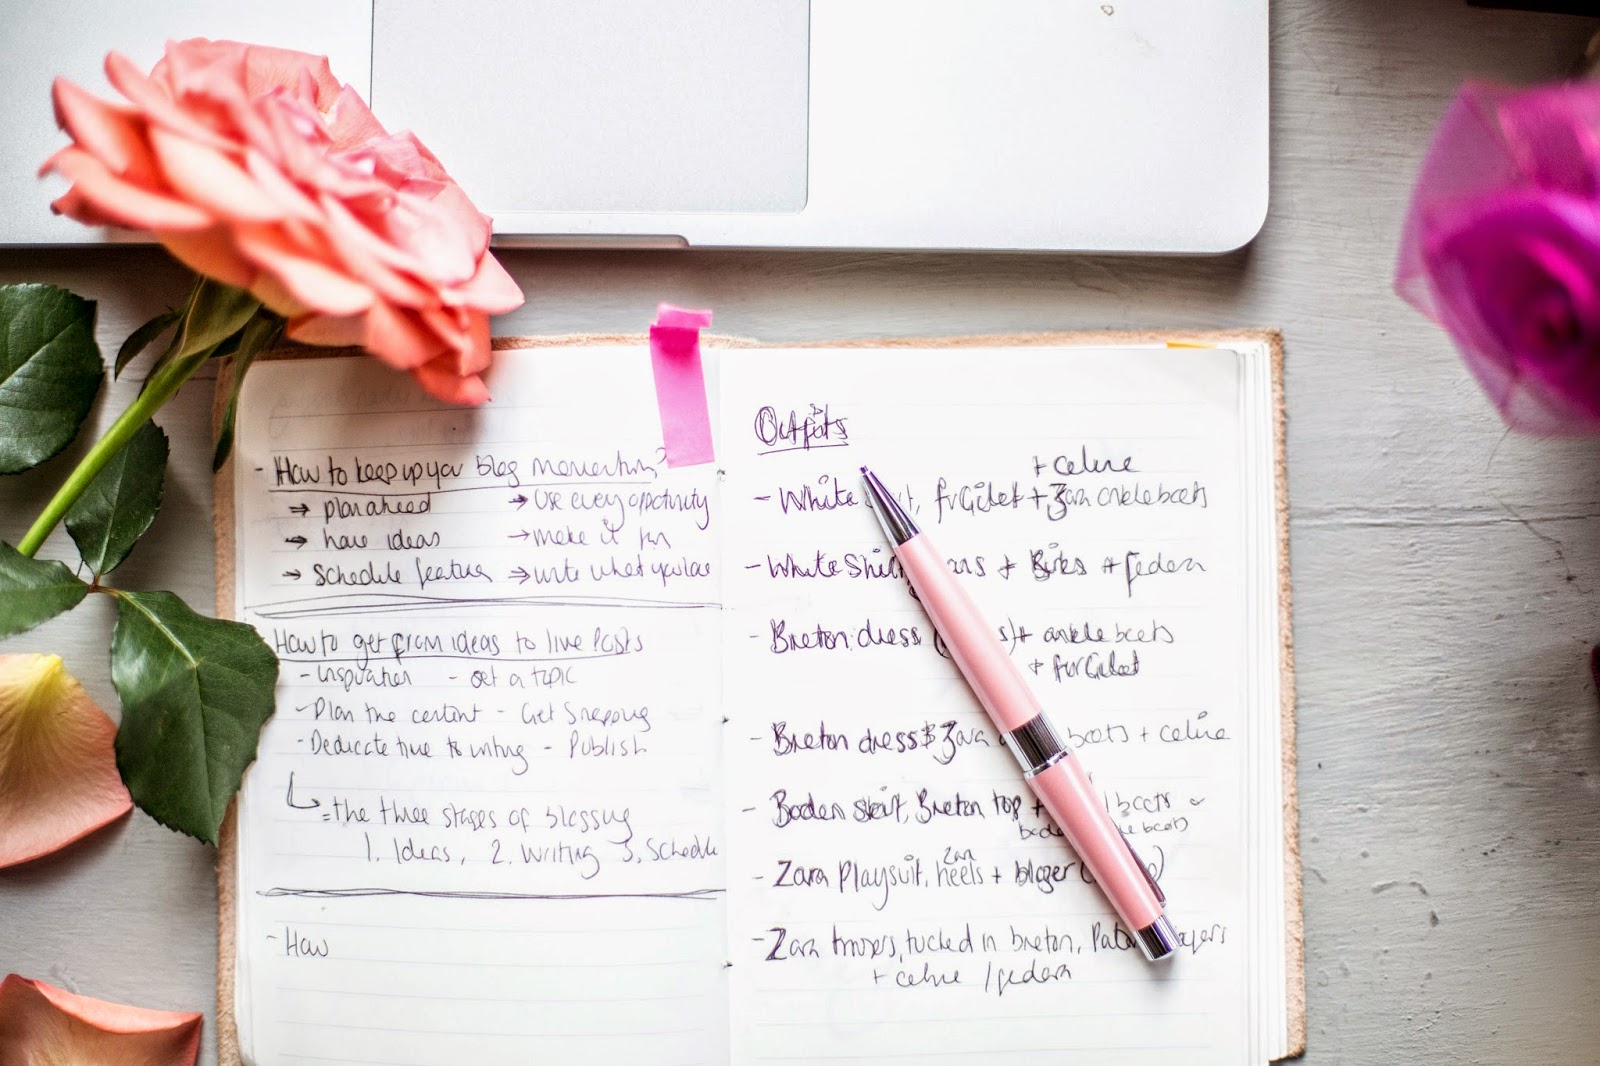 - How to keep up your blog momentum?
→ plan ahead → Use every opportunity
→ have ideas → make it fun
→ Schedule feature → write what you love
How to get from ideas to live Posts
- Inspiration - Get a topic
- Plan the content - Get Snapping
- Dedicate time to writing - Publish
= the three stages of blogging
1. Ideas, 2. Writing 3. Schedule
- How
Outfits
+ celine
- White fur Gilet + Zara ankle boots
- White Shirt + + fedora
- Breton dress + ankle boots
+ fur Gilet
- Breton dress Zara boots + celine
- Boden skirt, Breton top + boots
boots
Zara
- Zara Playsuit, heels +
- Zara trousers, tucked in breton,
+ celine / fedora